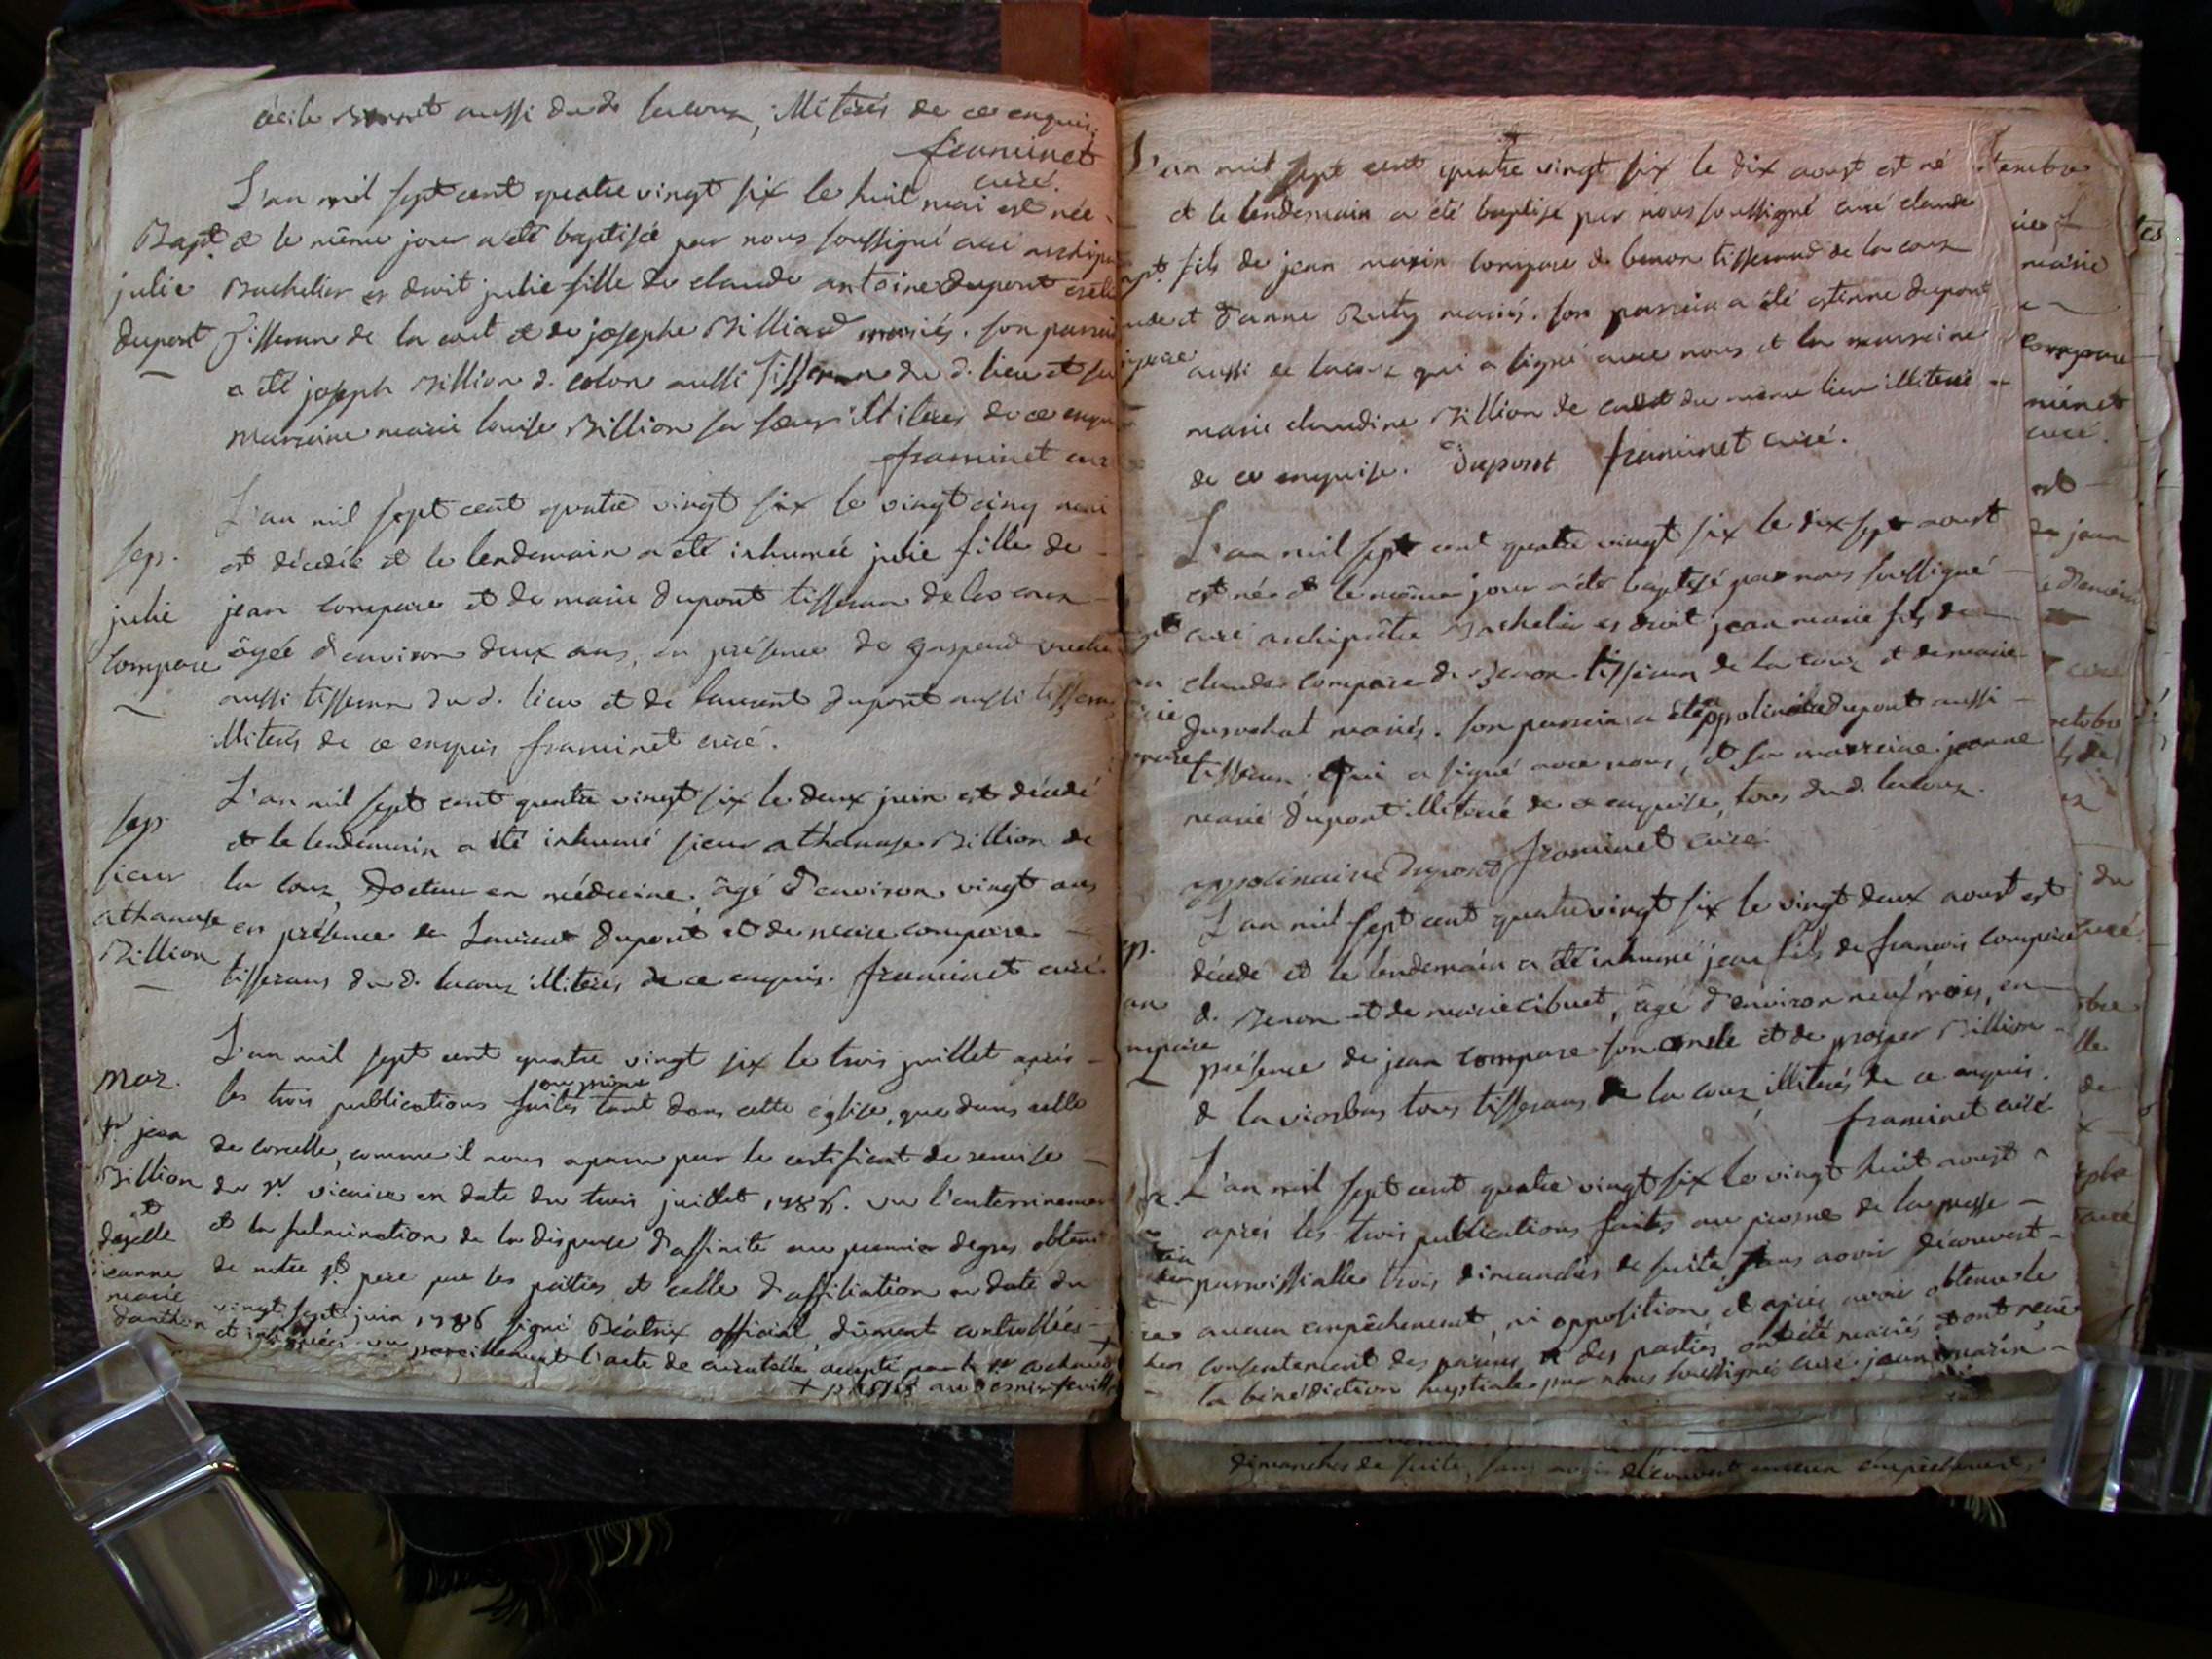 cécile aussi du d. lacoux, illiterés de ce enquis.
franminet
curé.
L'an mil sept cent quatre vingt six le huit mai est née
Bapt. et le même jour a été baptisée par nous soussigné curé
julie Bachelier es droit julie fille de claude antoine dupont
dupont Tisseran de la et de josephe Billiard mariés. son parrain
a été joseph Billion d. colon aussi Tisseran du d. lieu et sa
marraine marie louise Billion sa soeur illiterés de ce enquis
franminet curé
L'an mil sept cent quatre vingt six le vingt cinq mai
sep. est décédée et le lendemain a été inhumée julie fille de
julie jean compare et de marie dupont tisseran de la coux
compare âgée d'environ deux ans, en présence de gaspard
aussi tisseran du d. lieu et de laurent dupont aussi tisseran
illiterés de ce enquis franminet curé.
L'an mil sept cent quatre vingt six le deux juin est décédé
sep. et le lendemain a été inhumé sieur athanase Billion de
sieur la coux, Docteur en médecine, âgé d'environ vingt ans
athanase en présence de Laurent dupont et de compare
Billion tisserans du d. lacoux illiterés de ce enquis. franminet curé.
L'an mil sept cent quatre vingt six le trois juillet après
mar. les trois publications faites au prone tant dans cette église, que dans celle
sr. jean de corcelle, comme il nous apparu par le certificat de remise
Billion du sr. vicaire en date du trois juillet 1786. vu l'enterrinement
et et la fulmination de la dispense d'affinité au premier degres obtenue
dezelle de notre st. pere par les parties et celle d'affiliation en date du
jeanne
marie
danthon vingt sept juin 1786 signé Béatrix official, dûment controllées
et insinuées vu pareillement l'acte de curatelle accepté par le sr.
+ au dernier feuillet
L'an mil sept cent quatre vingt six le dix aoust est né
et le lendemain a été baptisé par nous soussigné curé claude
fils de jean marin compare d. benon tisserand de la coux
et d'anne Ruty mariés. son parrain a été estienne dupont
aussi de lacoux qui a signé avec nous et la marraine
marie claudine Billion de du même lieu illiterée
de ce enquise. Dupont franminet curé.
L'an mil sept cent quatre vingt six le dix sept aoust
est né et le même jour a été baptisé par nous soussigné
curé archiprêtre Bachelier es droit jean marie fils de
claude compare d. Benon tisseran de la coux et de marie
mariés. son parrain a été appolinaire dupont aussi
tisseran, qui a signé avec nous, et sa marraine jeanne
marie dupont illiterée de ce enquise, tous du d. lacoux.
appolinaire Dupont franminet curé.
L'an mil sept cent quatre vingt six le vingt deux aoust est
décédé et le lendemain a été inhumé jean fils de francois compare
d. Benon et de marie cibuet, âgé d'environ neuf mois, en
présence de jean compare son oncle et de prosper Billion
d. tous tisserans de la coux, illiterés de ce enquis.
franminet curé
L'an mil sept cent quatre vingt six le vingt huit aoust
après les trois publications faites au prosne de la messe
parroissialle trois dimanches de suite sans avoir découvert
aucun empêchement, ni opposition, et après avoir obtenu le
consentement des parens et des parties, ont été mariés et ont reçu
la bénédiction nuptiale par nous soussigné curé jean marin
dimanches de suite, sans avoir découvert aucun empêchement,